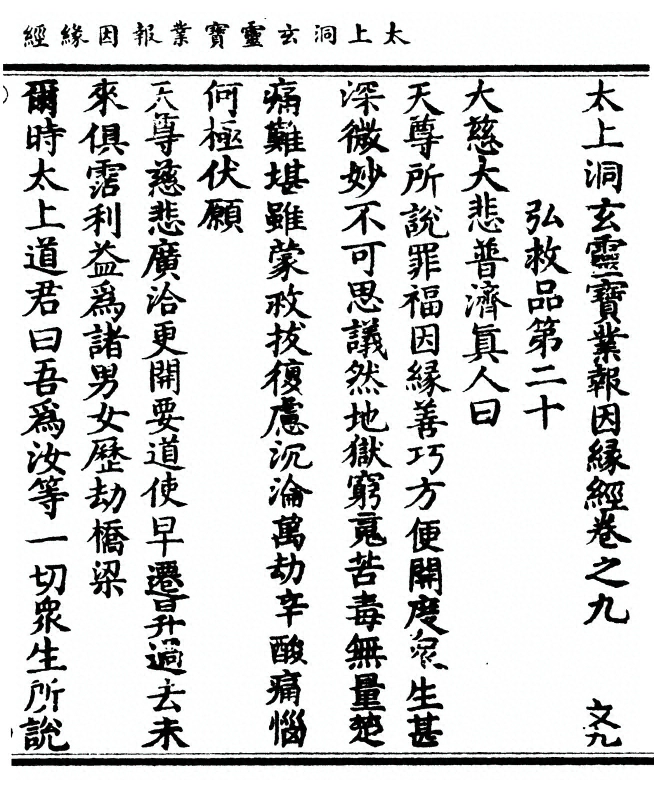 太上洞玄靈寶業報因緣經
太上洞玄靈寶業報因緣經卷之九 文九
弘救品第二十
大慈大悲普濟眞人曰
天尊所說罪福因緣善巧方便開度衆生甚
深微妙不可思議然地獄窮䰟苦毒無量楚
痛難堪雖蒙救拔復慮沉淪萬劫辛酸痛惱
何極伏願
天尊慈悲廣洽更開要道使早遷昇過去未
來俱霑利益爲諸男女歷劫橋梁
爾時太上道君曰吾爲汝等一切衆生所說